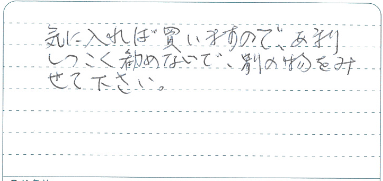 気に入れば買いますので、あまり
しつこく勧めないで、別の物をみ
せて下さい。